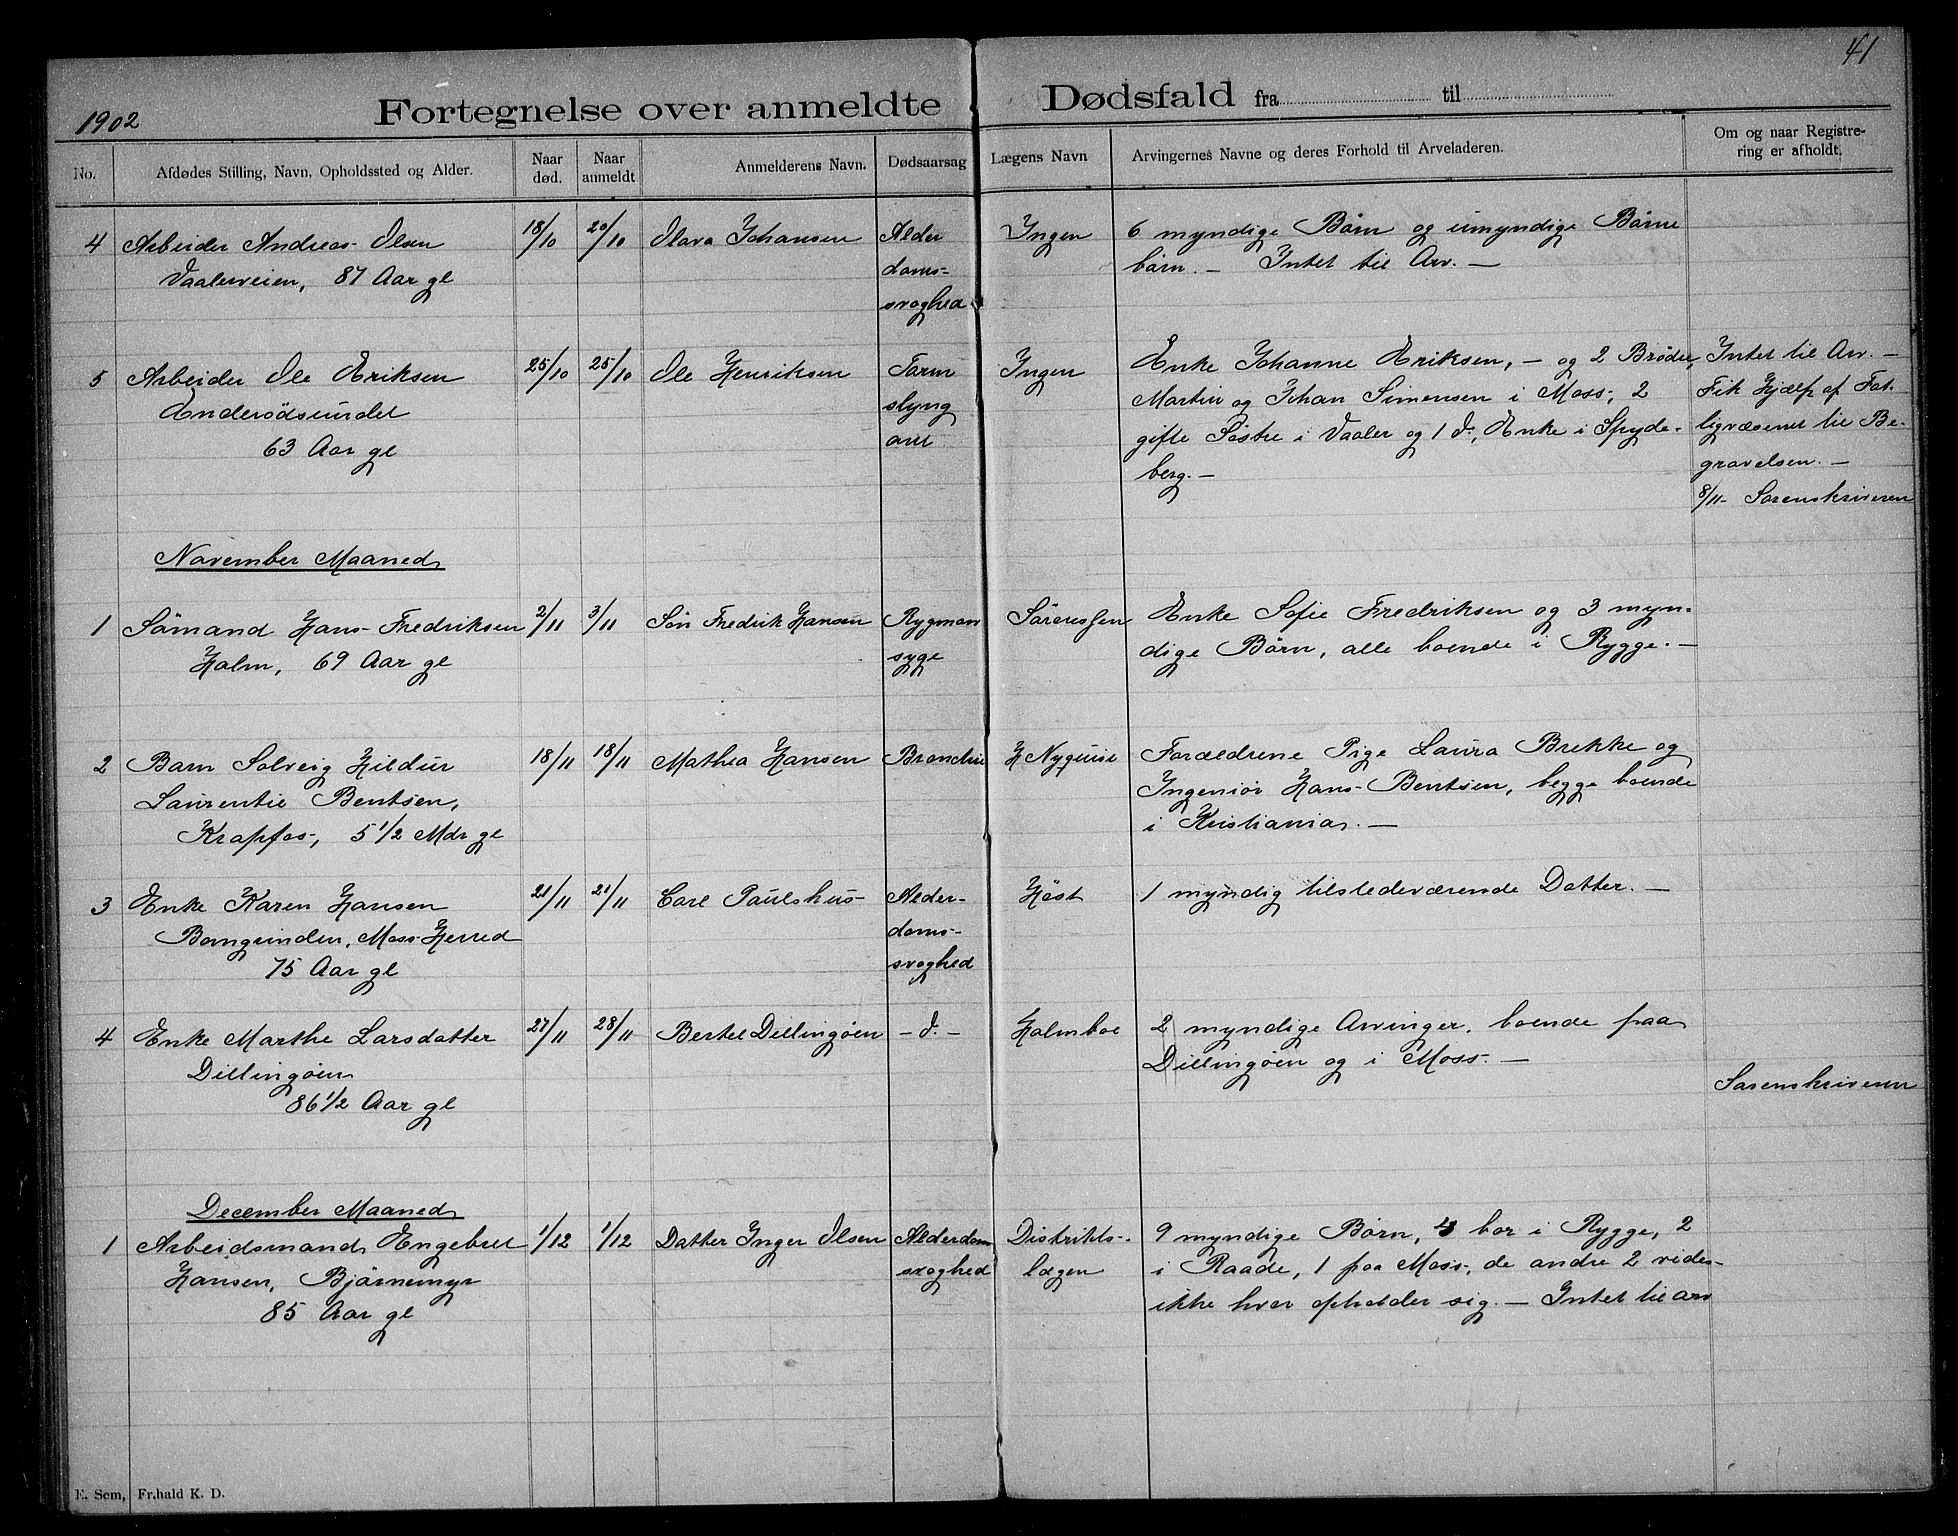 41
1902
Fortegnelse over anmeldte Dødsfald fra til
No.
Afdødes Stilling, Navn, Opholdssted og Alder.
Naar død.
Naar anmeldt
Anmelderens Navn.
Dødsaarsag
Lægens Navn
Arvingernes Navne og deres Forhold til Arveladeren.
Om og naar Registre-
ring er afholdt.
4 Arbeider Andreas Olsen
Vaalerveien, 87 Aar gl
18/10
20/10
Olava Johansen
Alder
doms-
svaghed
Ingen
6 myndige Børn og umyndige Børne
børn. — Intet til Arv. —
5 Arbeider Ole Eriksen
Enderødsundet
63 Aar gl
25/10
25/10
Ole Henriksen
Tarm
slyng
Ingen
Enke Johanne Eriksen, — og 2 Brødre,
Martin og Johan Simensen i Moss, 2
gifte Søstre i Vaaler og 1 do, Enke i Spyde-
berg. —
Intet til Arv. —
Fik Hjælp af Fat-
tigvæsenet til Be-
gravelsen. —
8/11 - Sorenskriveren
November Maaned
1 Sømand Hans Fredriksen
Holm, 69 Aar gl
2/11
3/11
Søn Fredrik Hansen
Rygmarv
syge
Sørenssen
Enke Sofie Fredriksen og 3 myn-
dige Børn, alle boende i Rygge. —
2 Barn Solveig Hildur
Laurentie Bentsen,
Krapfos, 5 1/2 Mdr gl
18/11
18/11
Mathea Hansen
Bronchit
H Nyquist
Forældrene Pige Laura Brekke og
Ingeniør Hans Bentsen, begge boende
i Kristiania. —
3 Enke Karen Hansen
Bomgrinden, Moss Herred
75 Aar gl
21/11
21/11
Carl Paulshus
Alder-
doms-
svaghed
Høst
1 myndig tilstedeværende Datter. —
4 Enke Marthe Larsdatter
Dillingøen
86 1/2 Aar gl
27/11
28/11
Bertel Dillingøen
— do —
Holmboe
2 myndige Arvinger, boende paa
Dillingøen og i Moss. —
Sorenskriveren
December Maaned
1 Arbeidsmand Engebret
Hansen, Bjørnemyr
85 Aar gl
1/12
1/12
Datter Inger Olsen
Alderdom
svaghed
Distrikts-
lægen
9 myndige Børn, 4 bor i Rygge, 2
i Raade, 1 paa Moss, de andre 2 vides
ikke hvor opholder sig. — Intet til arv
E. Sem, Fr.hald K. D.